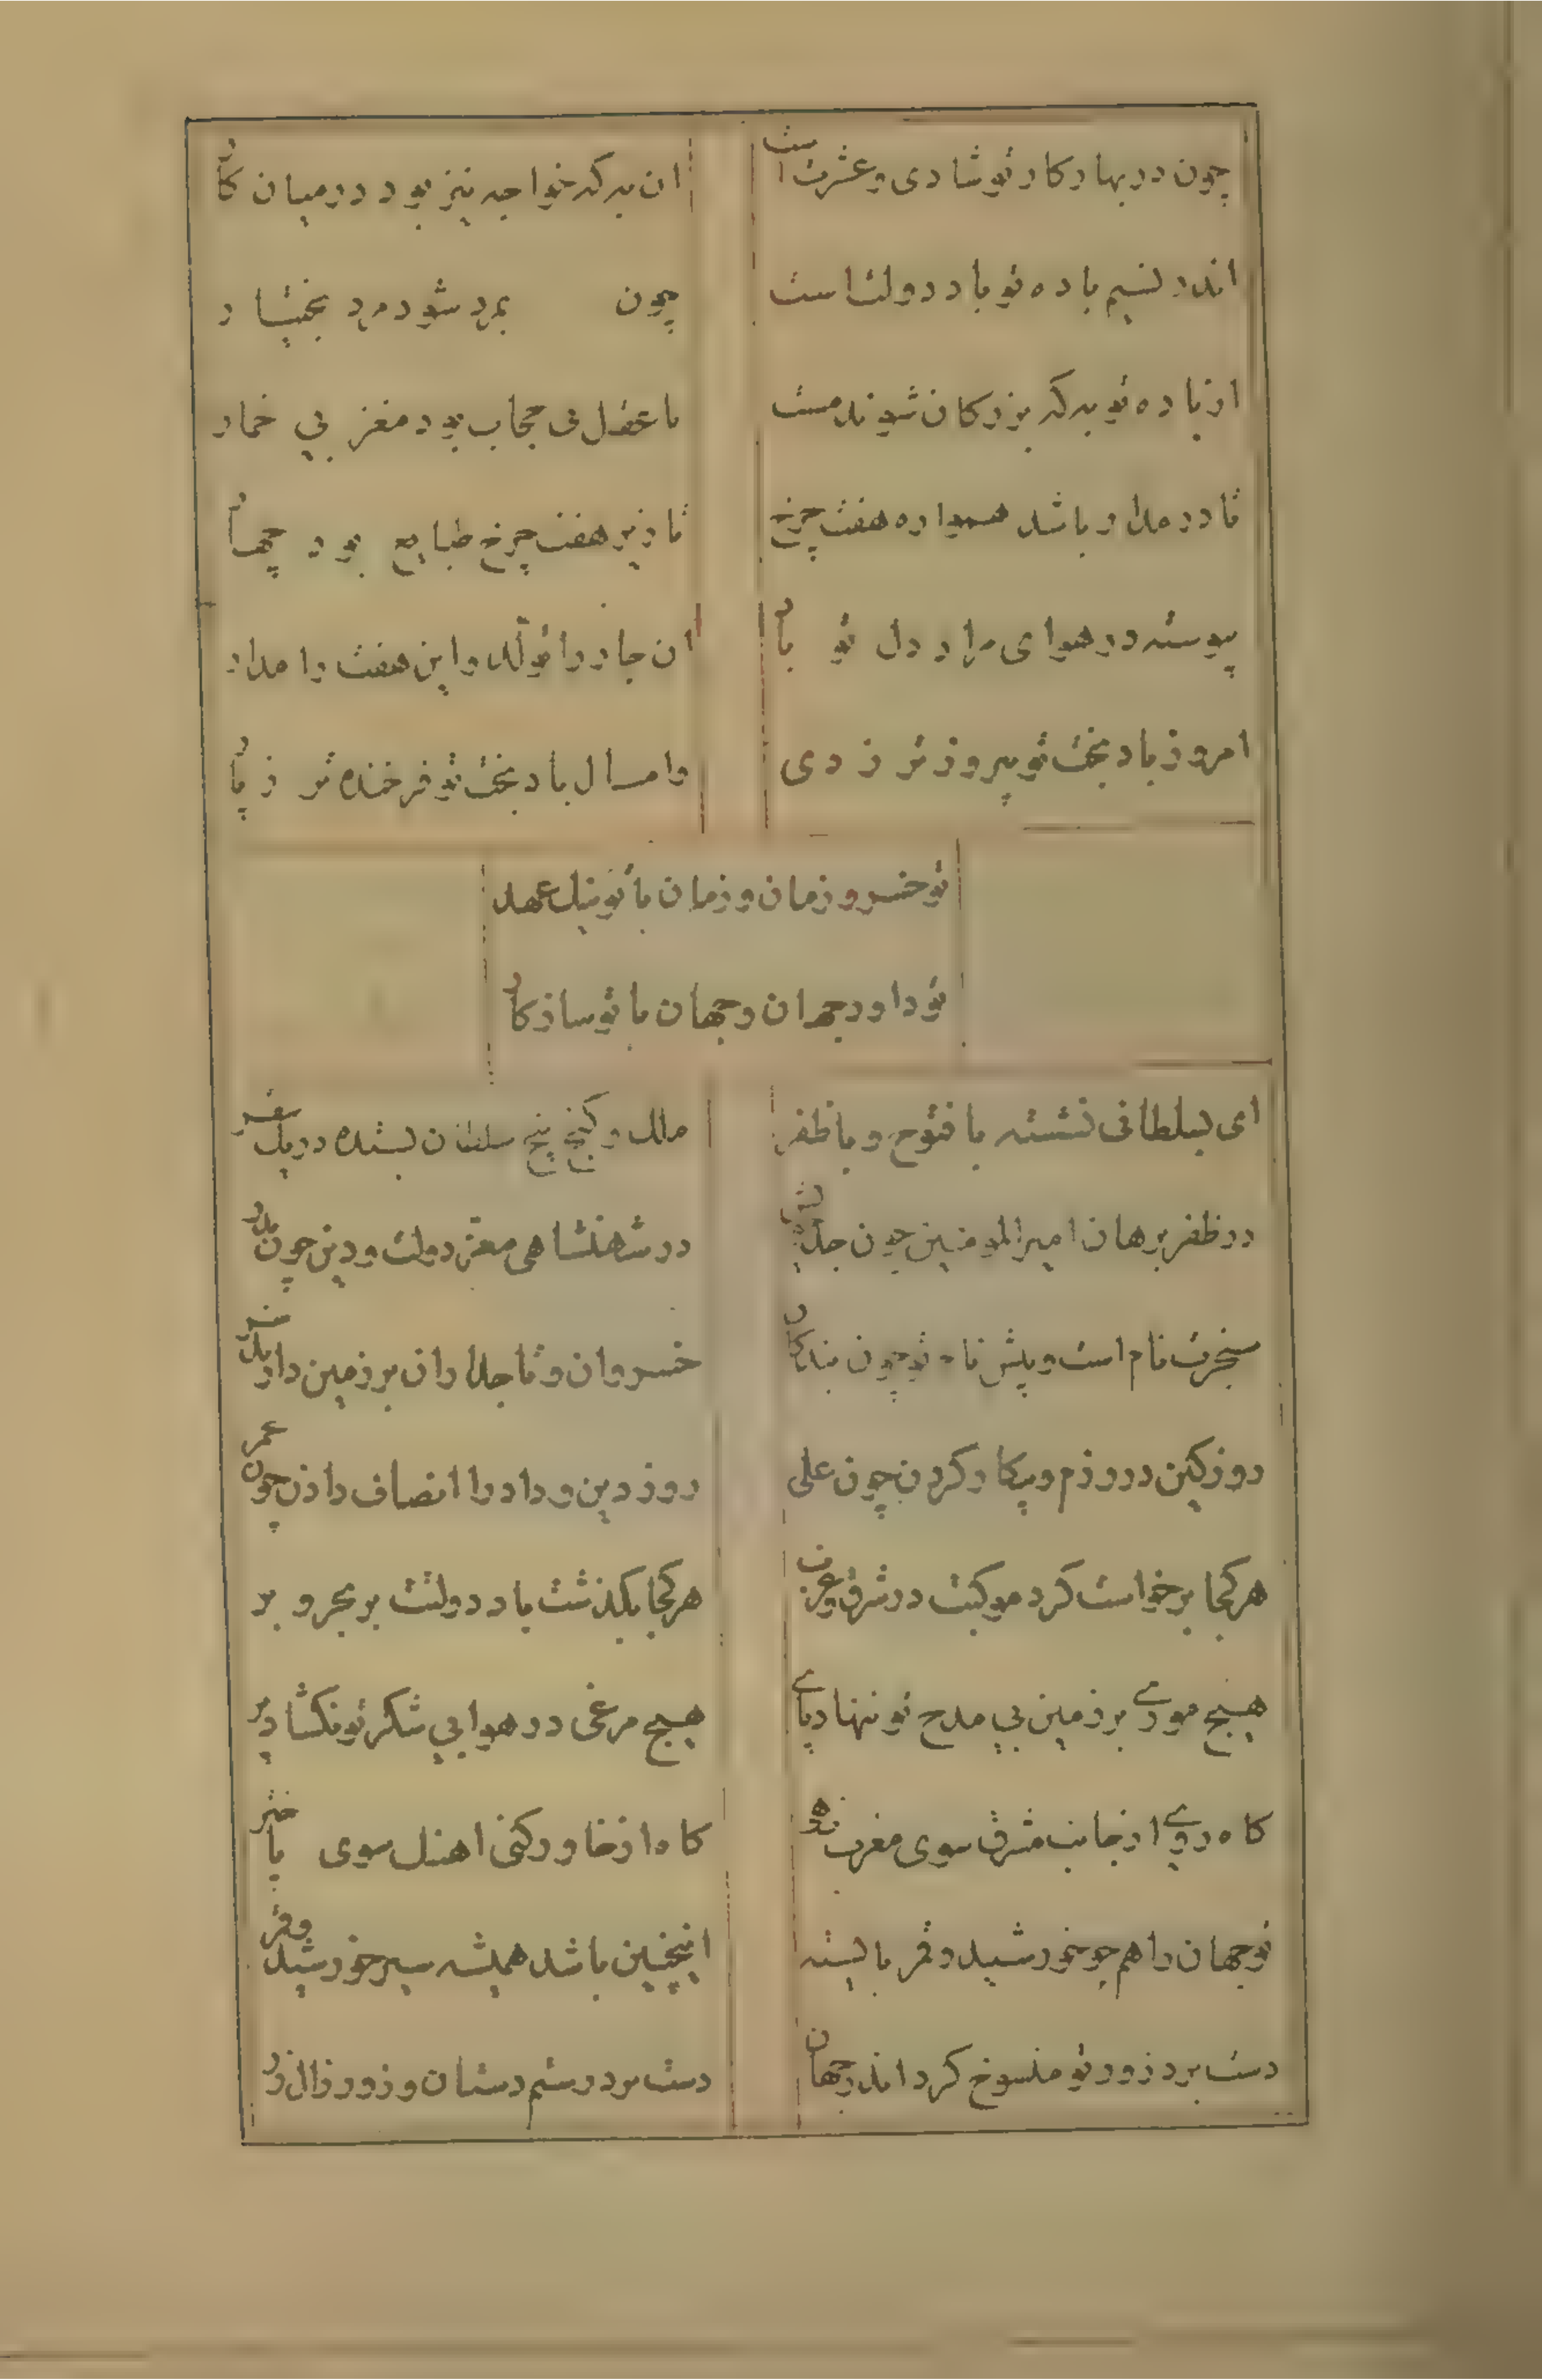 چون در بهار کار تو شادی و عشرت است
ان به که خواجه نیز بود در میان کار
اندر نسیم باده تو باد دولت است
چون بمرد شود مرد بختیار
از باده تو به که بزرکان شوند مست
با عقل بی حجاب بود مغز بی خمار
تا در مدار باشد همواره هفت چرخ
تا زیر هفت چرخ طبایع بود چهار
پیوسته در هوای مراد دل تو باد
ان چار را تولّد و این هفت را مدار
امروز باد بخت تو پیروزتر ز دی
وامسال باد بخت تو فرخنده تر ز پار
تو خسرو زمان و زمان با تو نیک عهد
تو داور جهان و جهان با تو سازکار
ای بسلطانی نشسته با فتوح و با ظفر
ملک و کنج پنج سلطان بستده در یک سفر
در ظفر برهان امیرالمومنین چون جدّ خویش
در شهنشاهی معزّ دولت و دین چون پدر
سنجرت نام است و پیش نام تو چون بندکان
خسروان و تاجداران بر زمین دارند سر
روز کین در رزم و پیکار کردن چون علی
روز دین و داد را انصاف دادن چون عمر
هر کجا برخواست کرد موکبت در شرق و غرب
هر کجا بکذشت باد دولتت بر بحر و بر
هیچ موری بر زمین بی مدح تو ننهاد پای
هیچ مرغی در هوا بی شکر تو نکشاد پر
کاه در پی از جانب مشرق سوی مغرب
کاه از خاور کنی اهنک سوی باختر
تو جهان را هم چو خورشید و قمر بایسته
اینچنین باشد همیشه سیر خورشید و قمر
دست برد و زور تو منسوخ کرد اندر جهان
دست برد رستم دستان و زور زال زر